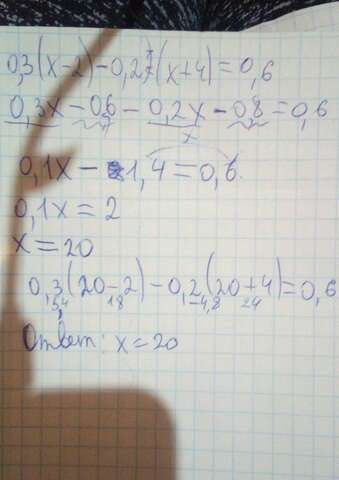 0,3(x-2)-0,2(x+4)=0,6
0,3x-0,6-0,2x-0,8=0,6
x
0,1x-1,4=0,6.
0,1x=2
x=20
0,3(20-2)-0,2(20+4)=0,6
5,4 18 4,8 24
Ответ: x=20